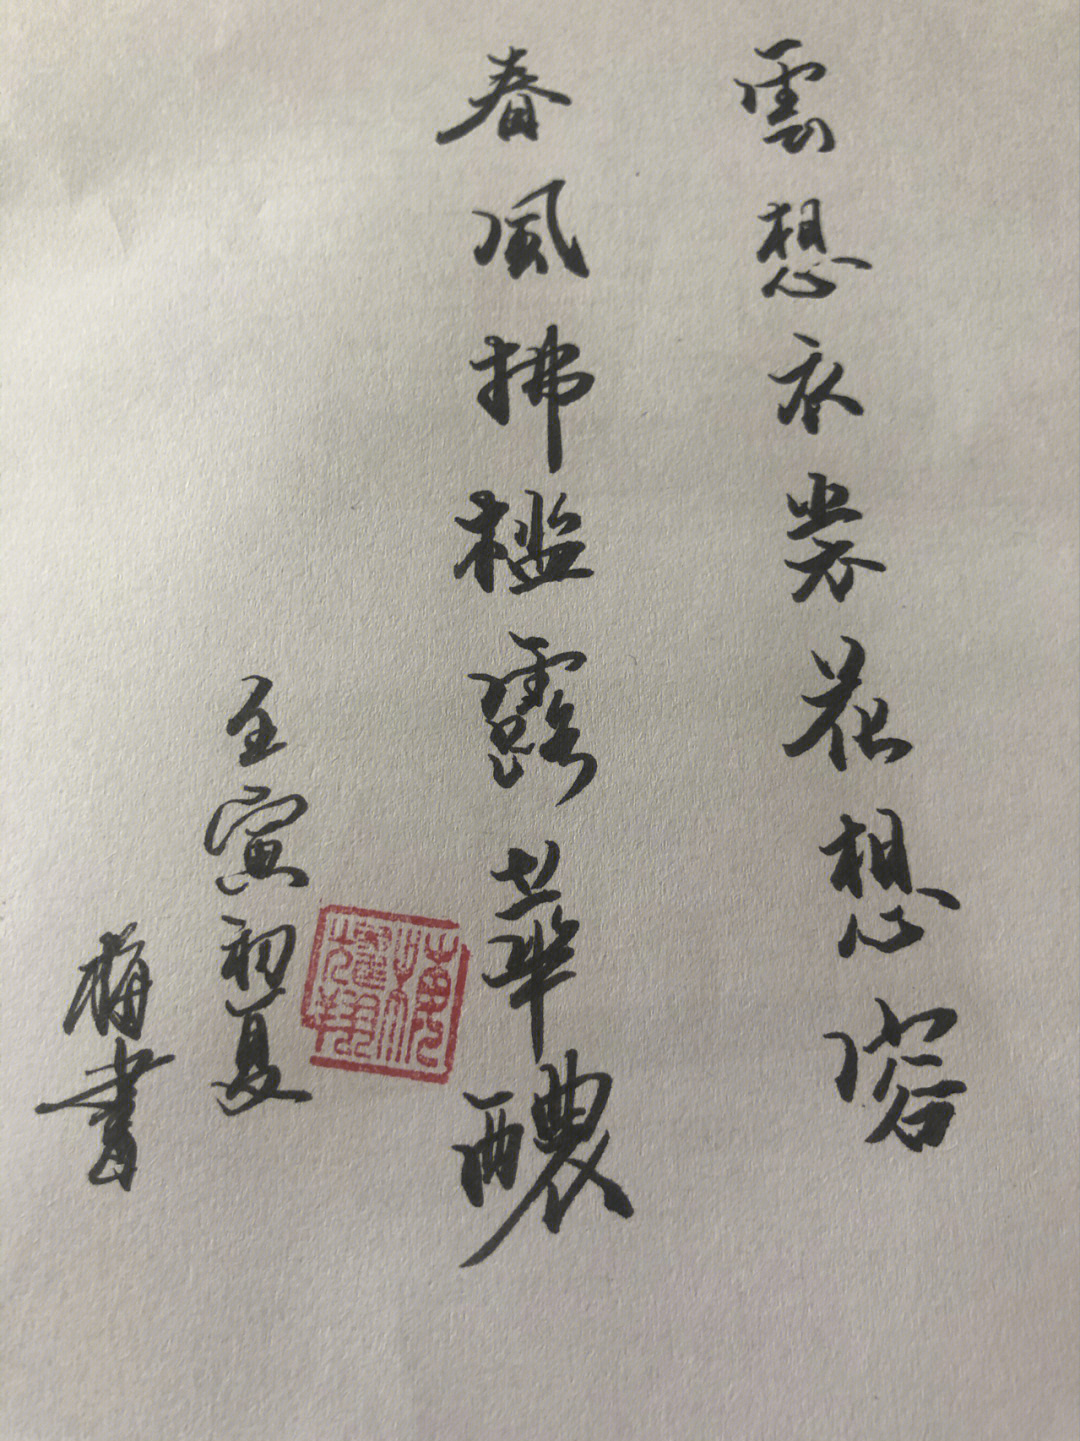 雲想衣裳花想容
春風拂檻露華醲
壬寅初夏
梅書